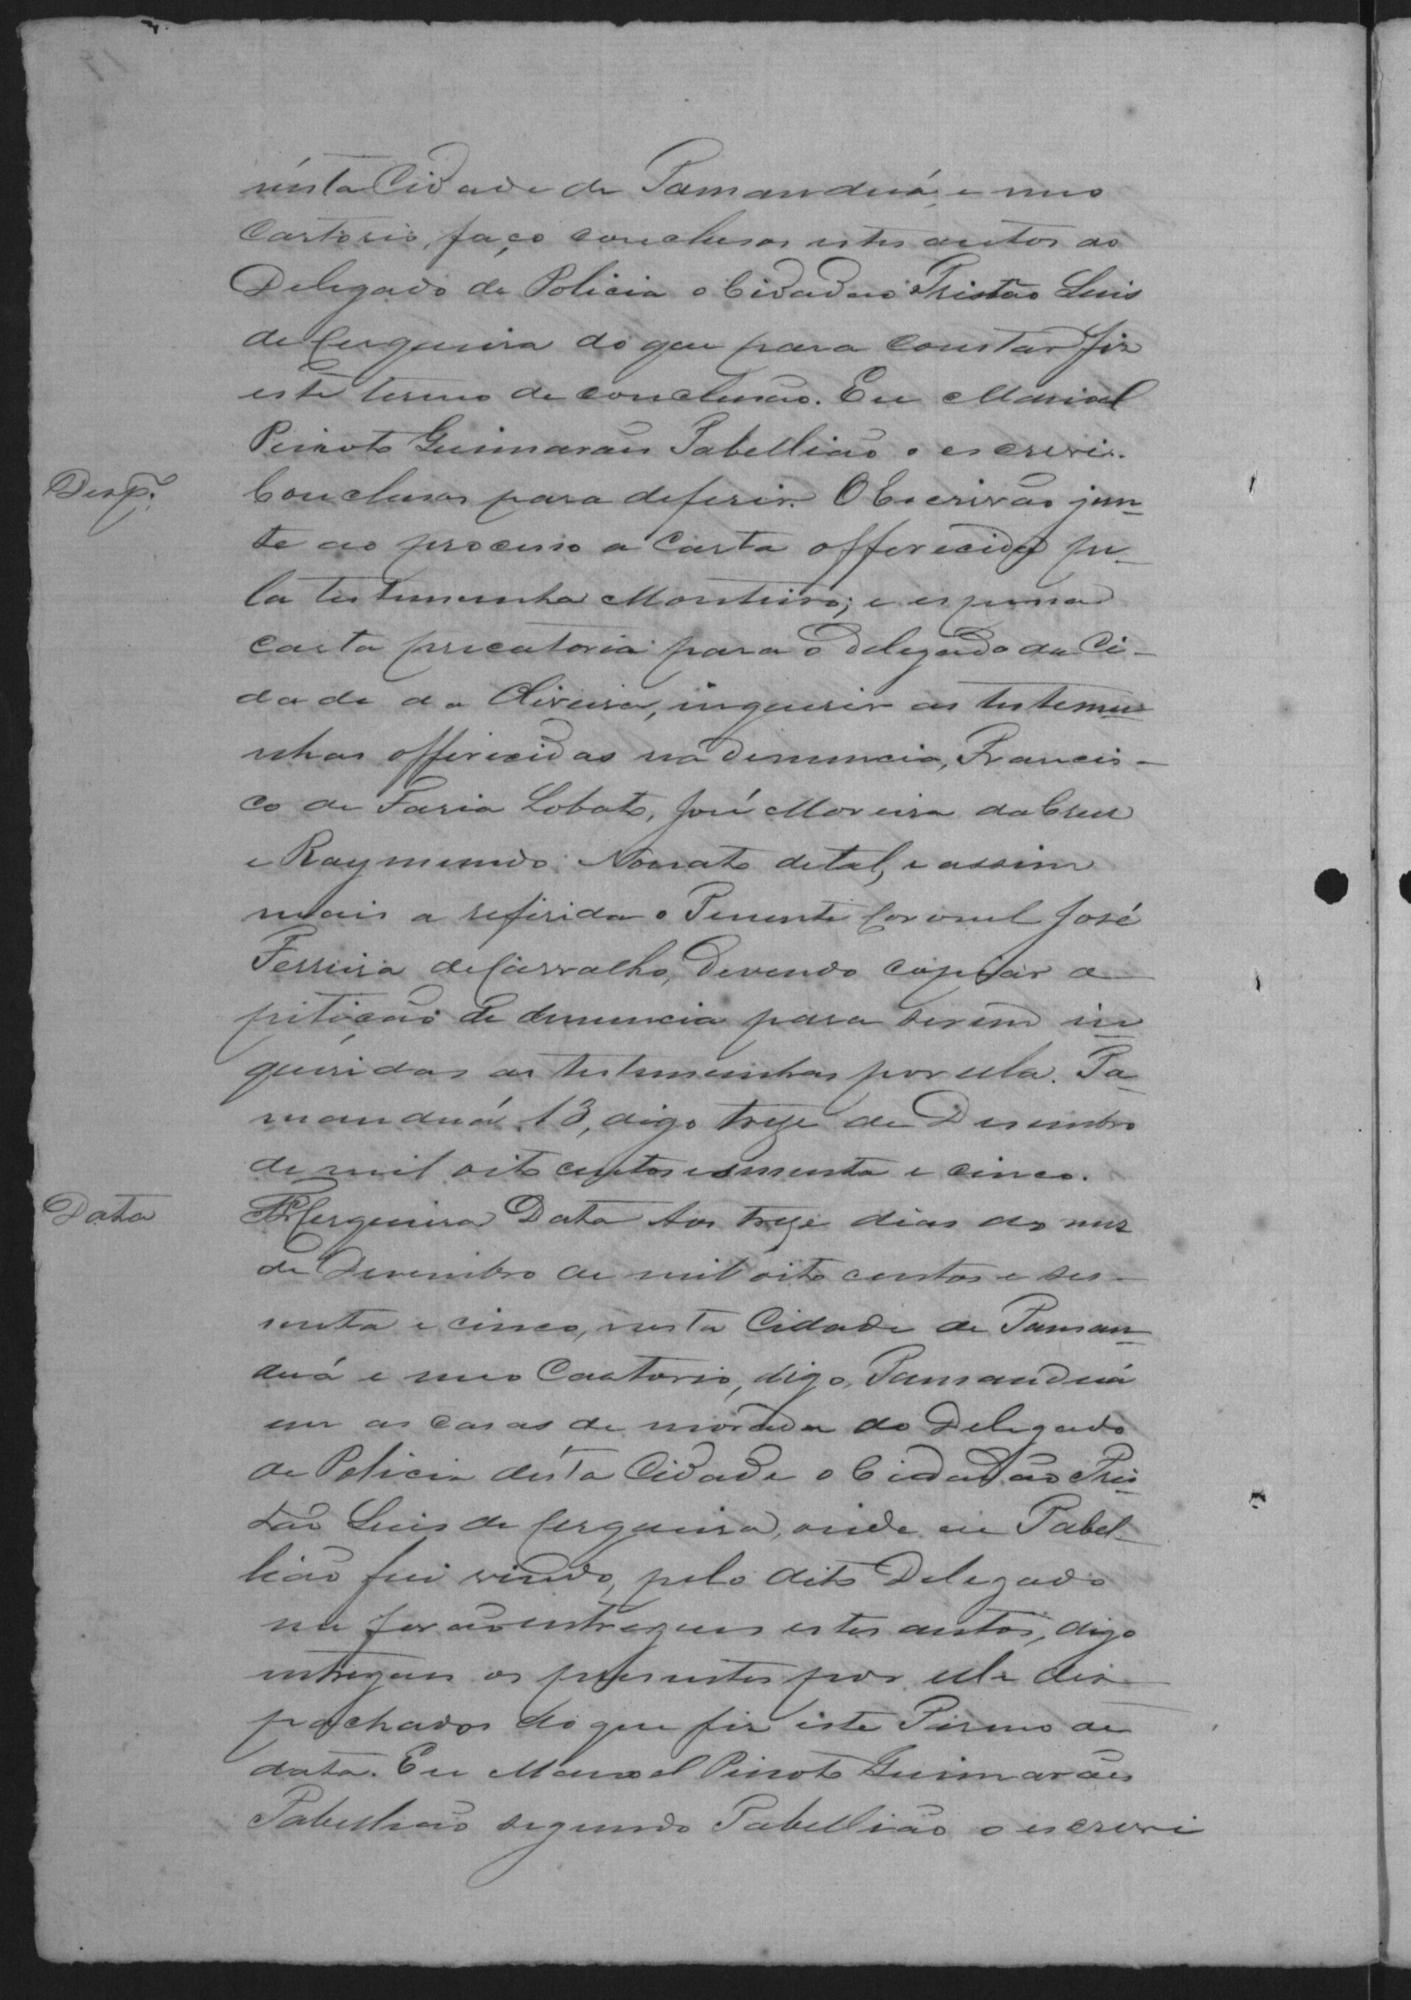 nesta Cidade de Tamanduá, e meo
Cartorio, faço conclusos estes autos ao
Delegado de Policia o Cidadão Tristão Luis
de Cerqueira do que para constar fiz
este termo de conclusão. Eu Manoel
Peixoto Guimarães Tabellião o escrevi.
Desp.º
Conclusos para deferir. O Escrivão jun-
te ao processo a Carta offerecida pe-
la testemunha Monteiro; e espessa
carta precatoria para o Delegado da Ci-
dade da Oliveira, inquerir as testemu-
nhas offerecidas na denuncia, Francis-
co de Faria Lobato, José Moreira da Cruz
e Raymundo Nonato de tal, e assim
mais a referida o Tenente Coronel José
Ferreira de Carvalho, devendo copiar a
petição de denuncia para serem in-
queridas as testemunhas por ella. Ta-
manduá 13, digo treze de Desembro
de mil oito centos e sessenta e cinco.
Data
Cerqueira Data Aos treze dias do mez
de Dezembro de mil oito centos e ses-
senta e cinco, nesta Cidade de Taman-
duá e meo Cartorio, digo, Tamanduá
em as casas de morada do Delegado
de Policia désta Cidade o Cidadão Tris-
tão Luis de Cerqueira, onde eu Tabel-
lião fui vindo, pelo dito Delegado
me forão entregues estes autos, digo
entregues os presentes por elle des-
pachados do que fiz este Termo de
data. Eu Manoel Peixoto Guimarães
Tabellião segundo Tabellião o escrevi